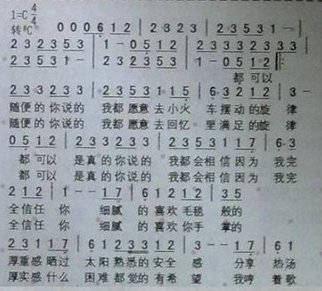 1=C 4/4
转♯C 0 0 0 6 1 2 | 2 3 2 3 | 2 3 5 3 1 — |
2 3 2 3 5 3 | 1 — 0 5 1 2 | 2 3 3 3 2 3 3 3
2 3 5 3 1 — | 2 3 2 3 5 3 | 1 — 0 5 1 2 :||
都 可以
2 3 3 2 3 3 | 2 3 5 3 1 1 5 | 6 3 2 1 2 | 3 —
随便 的 你说 的 我都 愿意 去 小火 车 摆动 的 旋 律
随便 的 你说 的 我都 愿意 去 回忆 里 满足 的 旋 律
0 5 1 2 | 2 3 3 2 3 3 | 2 3 5 3 1 1 7 | 6 1
都 可以 是真 的 你说 的 我都 会相 信 因为 我完
都 可以 是真 的 你说 的 我都 会相 信 因为 我完
2 1 2 | 1 — — 1 7 | 6 1 2 1 2 | 3 5
全信任 你 细腻 的 喜欢 毛毯 般的
全信任 你 细腻 的 喜欢 你手 掌的
2 3 1 1 7 | 6 1 2 1 2 | 3 — — 1 7 | 6 1
厚重感 晒过 太阳 熟悉的 安全 感 分享 热汤
厚实感 什么 困难 都觉的 有希 望 我哼 着歌